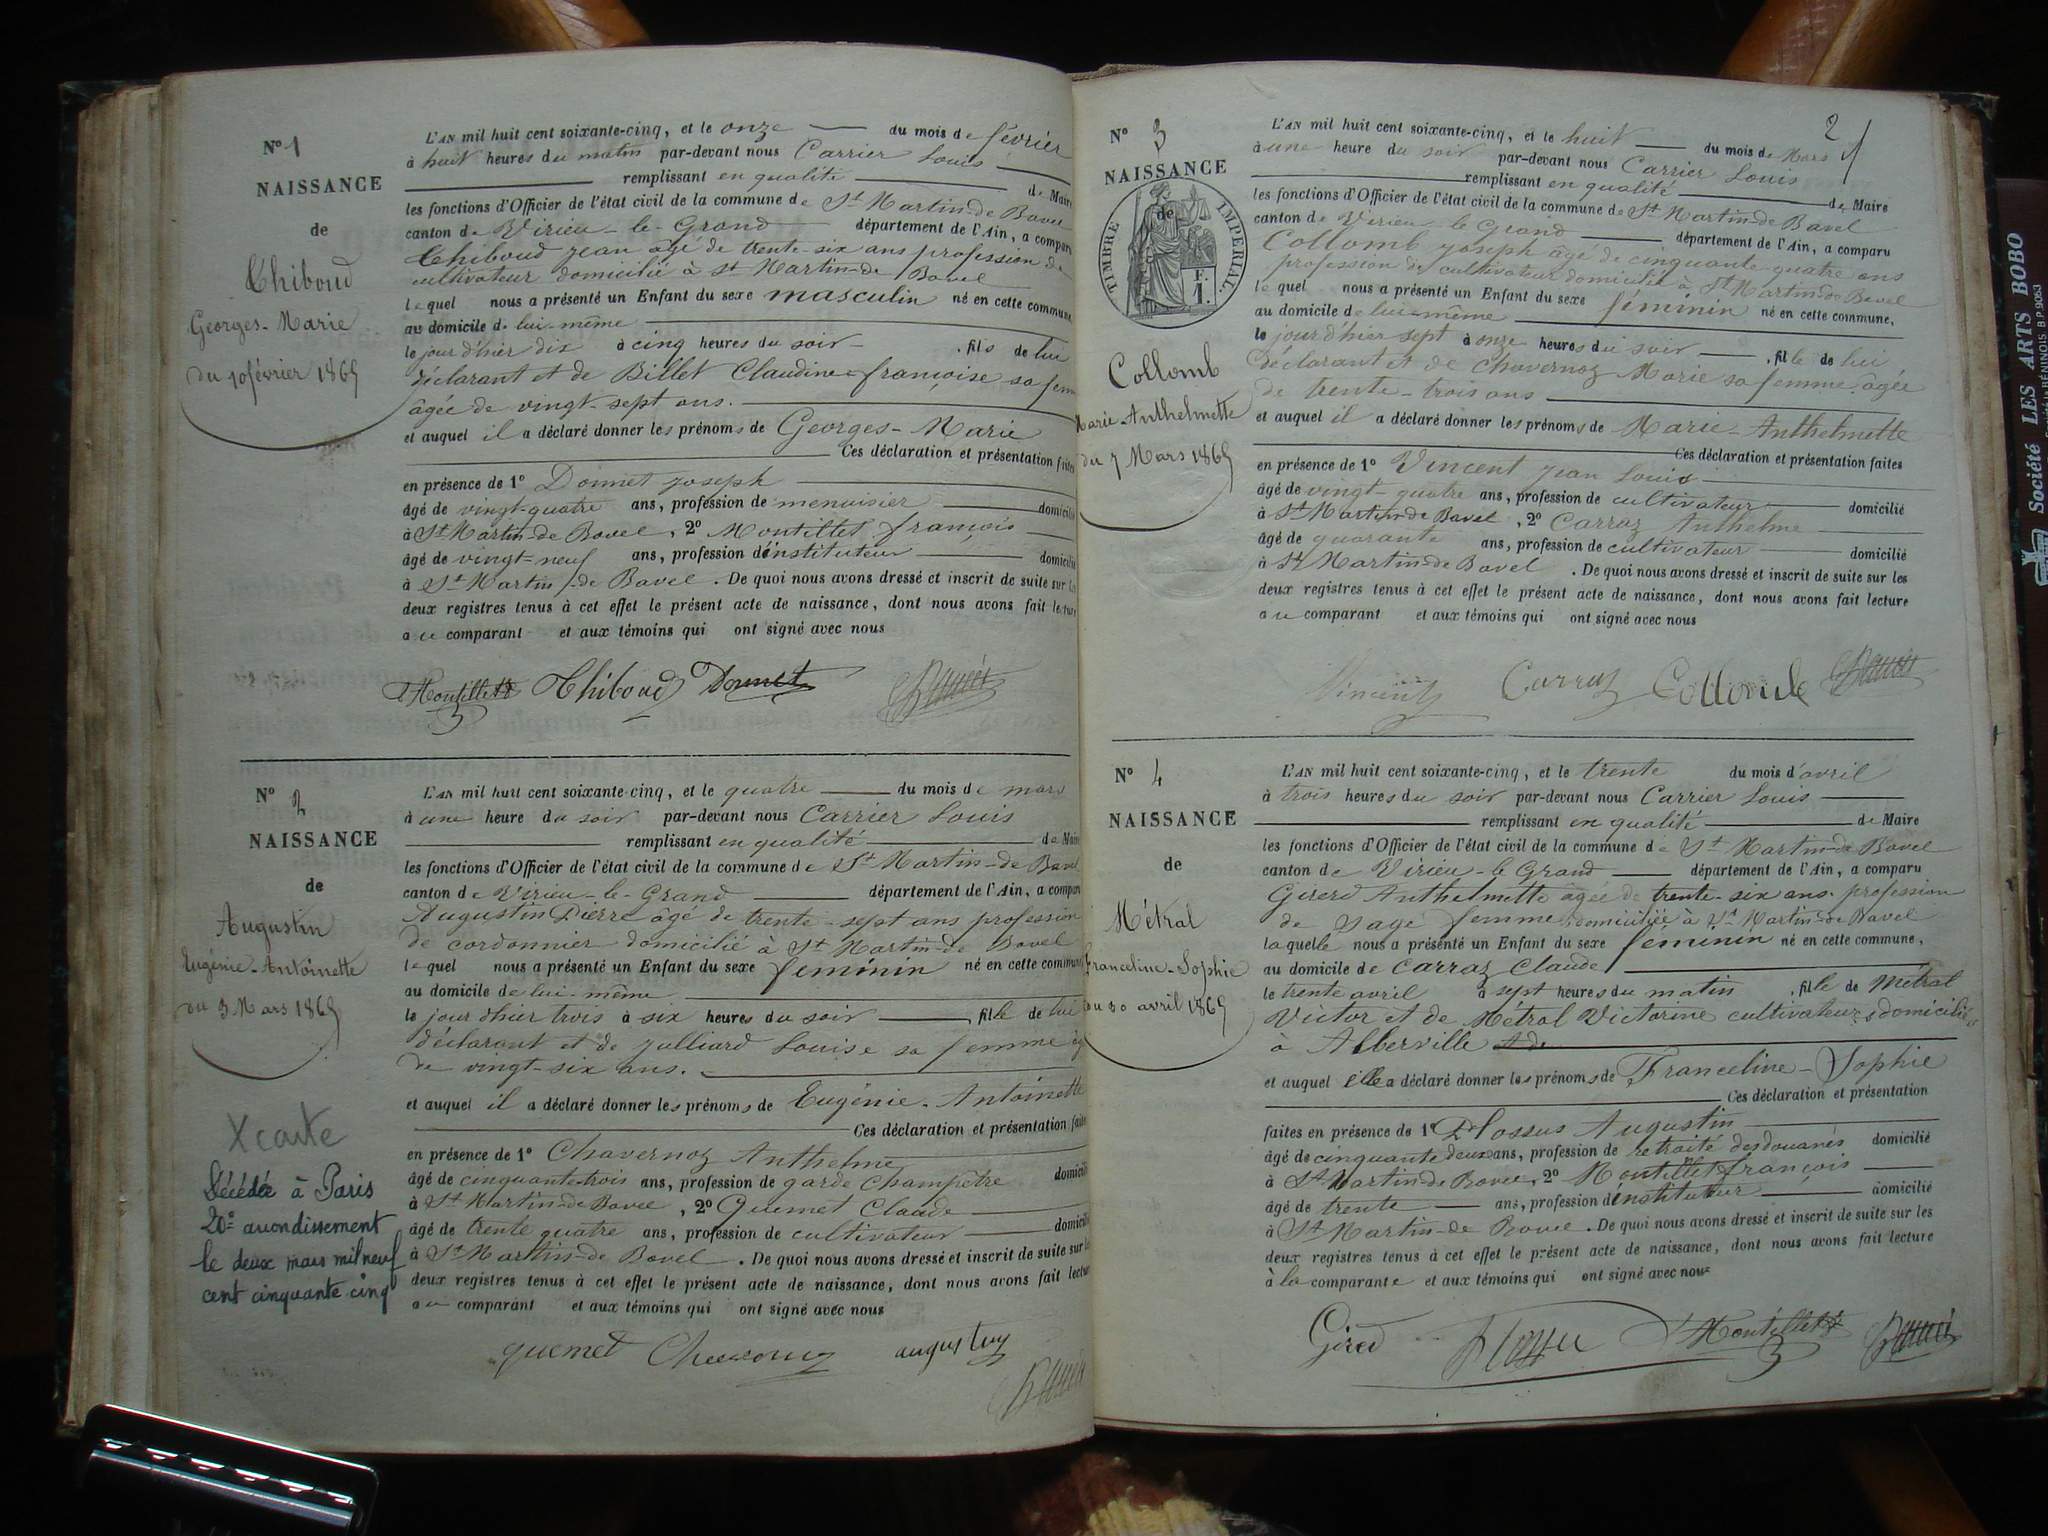 N° 1
NAISSANCE
de
Thiboud
Georges-Marie
du 10 février 1865
L'AN mil huit cent soixante-cinq, et le onze du mois de février
à huit heures du matin par-devant nous Carrier Louis
remplissant en qualité de Maire
les fonctions d'Officier de l'état civil de la commune de St Martin-de Bavel
canton de Virieu-le-Grand département de l'Ain, a comparu
Thiboud jean âgé de trente-six ans profession de
cultivateur domicilié à St Martin-de Bavel
lequel nous a présenté un Enfant du sexe masculin né en cette commune,
au domicile de lui-même
le jour d'hier dix à cinq heures du soir, fils de lui
déclarant et de Billet Claudine-françoise sa femme
âgée de vingt-sept ans.
et auquel il a déclaré donner les prénoms de Georges-Marie
Ces déclaration et présentation faites
en présence de 1° Donnet joseph
âgé de vingt-quatre ans, profession de menuisier domicilié
à St Martin-de Bavel, 2° Montillet françois
âgé de vingt-neuf ans, profession d'instituteur domicilié
à St Martin-de Bavel. De quoi nous avons dressé et inscrit de suite sur les
deux registres tenus à cet effet le présent acte de naissance, dont nous avons fait lecture
au comparant et aux témoins qui ont signé avec nous
Montillet Thiboud Donnet
N° 2
NAISSANCE
de
Augustin
Eugénie-Antoinette
du 3 Mars 1865
X carte
Décédée à Paris
20e arrondissement
le deux mars mil neuf
cent cinquante cinq
L'AN mil huit cent soixante-cinq, et le quatre du mois de mars
à une heure du soir par-devant nous Carrier Louis
remplissant en qualité de Maire
les fonctions d'Officier de l'état civil de la commune de St Martin-de Bavel
canton de Virieu-le-Grand département de l'Ain, a comparu
Augustin Pierre âgé de trente-sept ans profession
de cordonnier domicilié à St Martin-de Bavel
lequel nous a présenté un Enfant du sexe féminin né en cette commune
au domicile de lui-même
le jour d'hier trois à six heures du soir, fille de lui
déclarant et de julliard Louise sa femme âgée
de vingt-six ans.
et auquel il a déclaré donner les prénoms de Eugénie-Antoinette
Ces déclaration et présentation faites
en présence de 1° Chavernoz Anthelme
âgé de cinquante-trois ans, profession de garde champêtre domicilié
à St Martin-de Bavel, 2° Quemet Claude
âgé de trente quatre ans, profession de cultivateur domicilié
à St Martin-de Bavel. De quoi nous avons dressé et inscrit de suite sur les
deux registres tenus à cet effet le présent acte de naissance, dont nous avons fait lecture
au comparant et aux témoins qui ont signé avec nous
quemet
2
N° 3
NAISSANCE
de
TIMBRE IMPERIAL.
F.
1.
Collomb
Marie-Anthelmette
du 7 Mars 1865
L'AN mil huit cent soixante-cinq, et le huit du mois de Mars
à une heure du soir par-devant nous Carrier Louis
remplissant en qualité de Maire
les fonctions d'Officier de l'état civil de la commune de St Martin-de Bavel
canton de Virieu-le Grand département de l'Ain, a comparu
Collomb joseph âgé de cinquante-quatre ans
profession de cultivateur domicilié à St Martin-de Bavel
lequel nous a présenté un Enfant du sexe féminin né en cette commune,
au domicile de lui-même
le jour d'hier sept à onze heures du soir, fille de lui
déclarant et de Chavernoz Marie sa femme âgée
de trente-trois ans
et auquel il a déclaré donner les prénoms de Marie-Anthelmette
Ces déclaration et présentation faites
en présence de 1° Vincent jean Louis
âgé de vingt-quatre ans, profession de cultivateur domicilié
à St Martin-de Bavel, 2° Carraz Anthelme
âgé de quarante ans, profession de cultivateur domicilié
à St Martin-de Bavel. De quoi nous avons dressé et inscrit de suite sur les
deux registres tenus à cet effet le présent acte de naissance, dont nous avons fait lecture
au comparant et aux témoins qui ont signé avec nous
Vincent Carraz Collomb
N° 4
NAISSANCE
de
Métral
Franceline-Sophie
du 30 avril 1865
L'AN mil huit cent soixante-cinq, et le trente du mois d'avril
à trois heures du soir par-devant nous Carrier Louis
remplissant en qualité de Maire
les fonctions d'Officier de l'état civil de la commune de St Martin-de Bavel
canton de Virieu-le Grand département de l'Ain, a comparu
Girerd Anthelmette âgée de trente-six ans profession
de sage femme domiciliée à St Martin-de Bavel
laquelle nous a présenté un Enfant du sexe féminin né en cette commune,
au domicile de Carraz Claude
le trente avril à sept heures du matin, fille de Métral
Victor et de Métral Victorine cultivateurs domiciliés
à Alberville
et auquel elle a déclaré donner les prénoms de Franceline-Sophie
Ces déclaration et présentation
faites en présence de 1° Plossus Augustin
âgé de cinquante deux ans, profession de retraité des douanes domicilié
à St Martin-de Bavel, 2° Montillet françois
âgé de trente ans, profession d'instituteur domicilié
à St Martin-de Bavel. De quoi nous avons dressé et inscrit de suite sur les
deux registres tenus à cet effet le présent acte de naissance, dont nous avons fait lecture
à la comparante et aux témoins qui ont signé avec nous
Montillet
Société LES ARTS BOBO